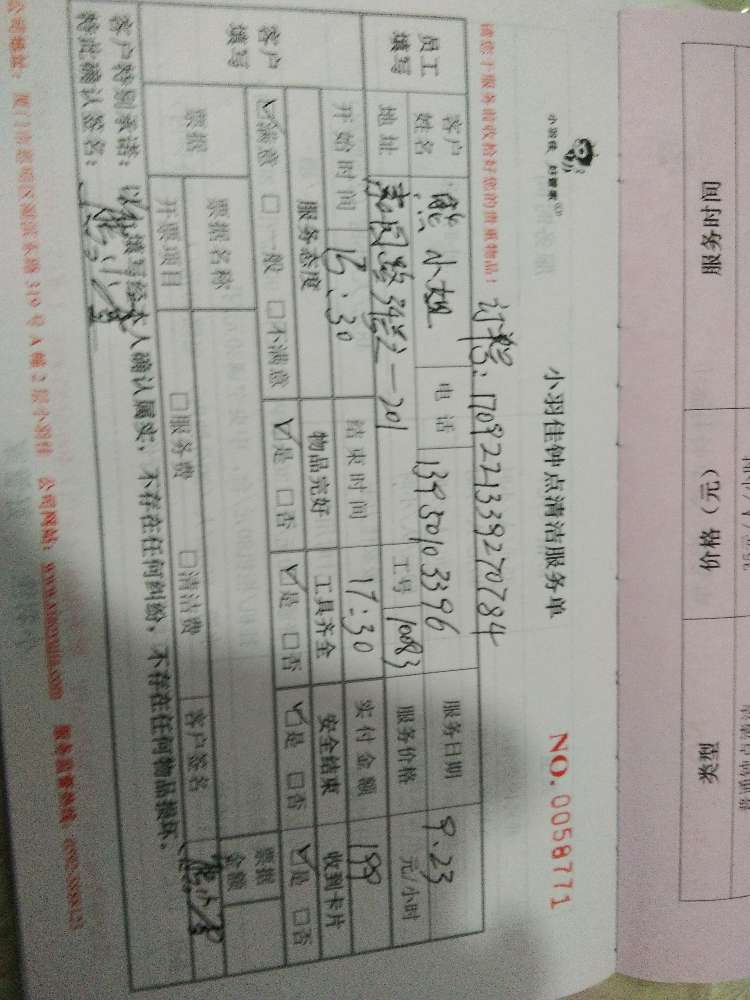 小羽佳 好管家
小羽佳钟点清洁服务单
NO. 0058771
请您于服务前收拾好您的贵重物品！
订单号: 1709221339270784
员工填写
客户姓名 熊小姐 电话 13950103396 服务日期 9.23
地址 工号 10083 服务价格 元/小时
开始时间 13:30 结束时间 17:30 实付金额 199
客户填写
服务态度 物品完好 工具齐全 安全结束 收到卡片
☑满意 □一般 □不满意 ☑是 □否 ☑是 □否 ☑是 □否 ☑是 □否
票据 票据名称 票据金额
开票项目 □服务费 □清洁费 客户签名
客户特别承诺：以上填写经本人确认属实，不存在任何纠纷，不存在任何物品损坏。
特此确认签名：
公司网站：
服务监督热线：
服务时间 价格（元） 类型